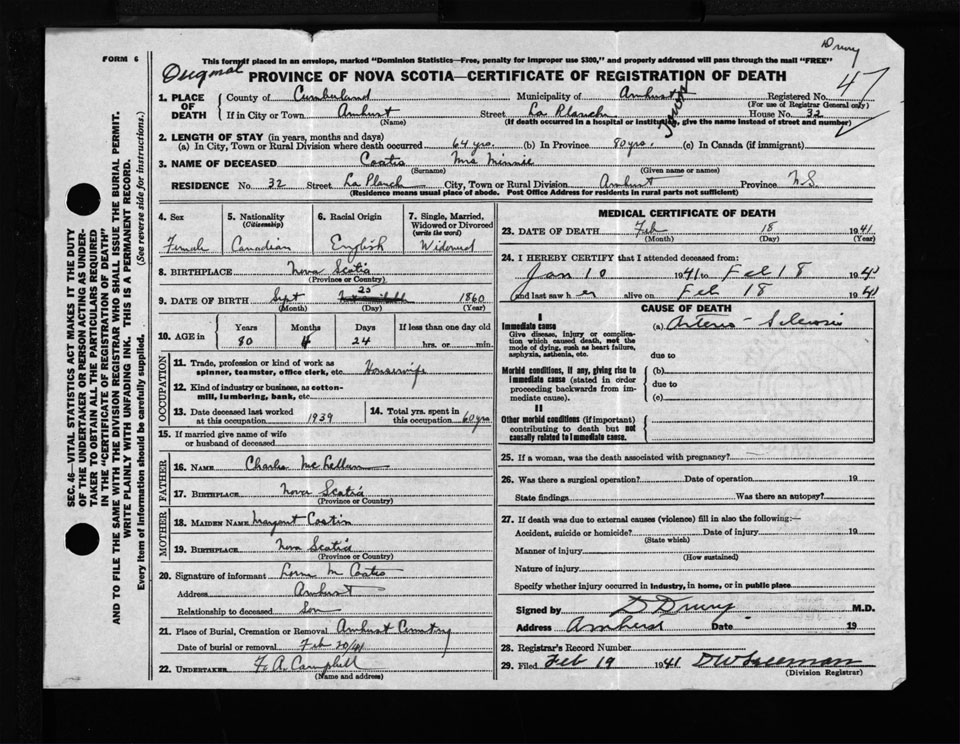 Drury
FORM 6
This form if placed in an envelope, marked "Dominion Statistics—Free, penalty for improper use $300," and properly addressed will pass through the mail "FREE"
Original PROVINCE OF NOVA SCOTIA—CERTIFICATE OF REGISTRATION OF DEATH
47
1. PLACE OF DEATH County of Cumberland Municipality of Amherst Registered No.
(For use of Registrar General only)
If in City or Town Amherst Street La Planch House No. 32
(Name) (If death occurred in a hospital or institution, give the name instead of street and number)
2. LENGTH OF STAY (in years, months and days)
(a) In City, Town or Rural Division where death occurred 64 yrs. (b) In Province 80 yrs. (c) In Canada (if immigrant)
3. NAME OF DECEASED Coates Mrs Minnie
(Surname) (Given name or names)
RESIDENCE No. 32 Street La Planch City, Town or Rural Division Amherst Province N.S
(Residence means usual place of abode. Post Office Address for residents in rural parts not sufficient)
4. Sex
Female
5. Nationality
(Citizenship)
Canadian
6. Racial Origin
English
7. Single, Married, Widowed or Divorced
(write the word)
Widowed
8. BIRTHPLACE Nova Scotia
(Province or Country)
9. DATE OF BIRTH Sept 25 1860
(Month) (Day) (Year)
10. AGE in Years Months Days If less than one day old
80 4 24 hrs. or min.
OCCUPATION
11. Trade, profession or kind of work as spinner, teamster, office clerk, etc. Housewife
12. Kind of industry or business, as cotton-mill, lumbering, bank, etc.
13. Date deceased last worked at this occupation 1939
14. Total yrs. spent in this occupation 60 yrs
15. If married give name of wife or husband of deceased
FATHER
16. NAME Charles McLellan
17. BIRTHPLACE Nova Scotia
(Province or Country)
MOTHER
18. MAIDEN NAME Margaret
19. BIRTHPLACE Nova Scotia
(Province or Country)
20. Signature of informant M Coates
Address Amherst
Relationship to deceased Son
21. Place of Burial, Cremation or Removal Amherst Cemetry
Date of burial or removal Feb 20/41
22. UNDERTAKER F. A. Campbell
(Name and address)
MEDICAL CERTIFICATE OF DEATH
23. DATE OF DEATH Feb 18 1941
(Month) (Day) (Year)
24. I HEREBY CERTIFY that I attended deceased from:
Jan 10 1941 to Feb 18 1941
and last saw her alive on Feb 18 1941
CAUSE OF DEATH
I
Immediate cause (a) Arterio-Sclerosis
Give disease, injury or complication which caused death, not the mode of dying, such as heart failure, asphyxia, asthenia, etc.
due to
Morbid conditions, if any, giving rise to immediate cause (stated in order proceeding backwards from immediate cause).
(b)
due to
(c)
II
Other morbid conditions (if important) contributing to death but not causally related to immediate cause.
25. If a woman, was the death associated with pregnancy?
26. Was there a surgical operation? Date of operation 19
State findings Was there an autopsy?
27. If death was due to external causes (violence) fill in also the following:—
Accident, suicide or homicide? Date of injury 19
(State which)
Manner of injury
(How sustained)
Nature of injury
Specify whether injury occurred in industry, in home, or in public place
Signed by D Drury M.D.
Address Amherst Date 19
28. Registrar's Record Number
29. Filed Feb 19 1941 DW Freeman
(Division Registrar)
SEC. 46—VITAL STATISTICS ACT MAKES IT THE DUTY
OF THE UNDERTAKER OR PERSON ACTING AS UNDER-
TAKER TO OBTAIN ALL THE PARTICULARS REQUIRED
IN THE "CERTIFICATE OF REGISTRATION OF DEATH"
AND TO FILE THE SAME WITH THE DIVISION REGISTRAR WHO SHALL ISSUE THE BURIAL PERMIT.
WRITE PLAINLY WITH UNFADING INK. THIS IS A PERMANENT RECORD.
Every item of Information should be carefully supplied. (See reverse side for instructions.)